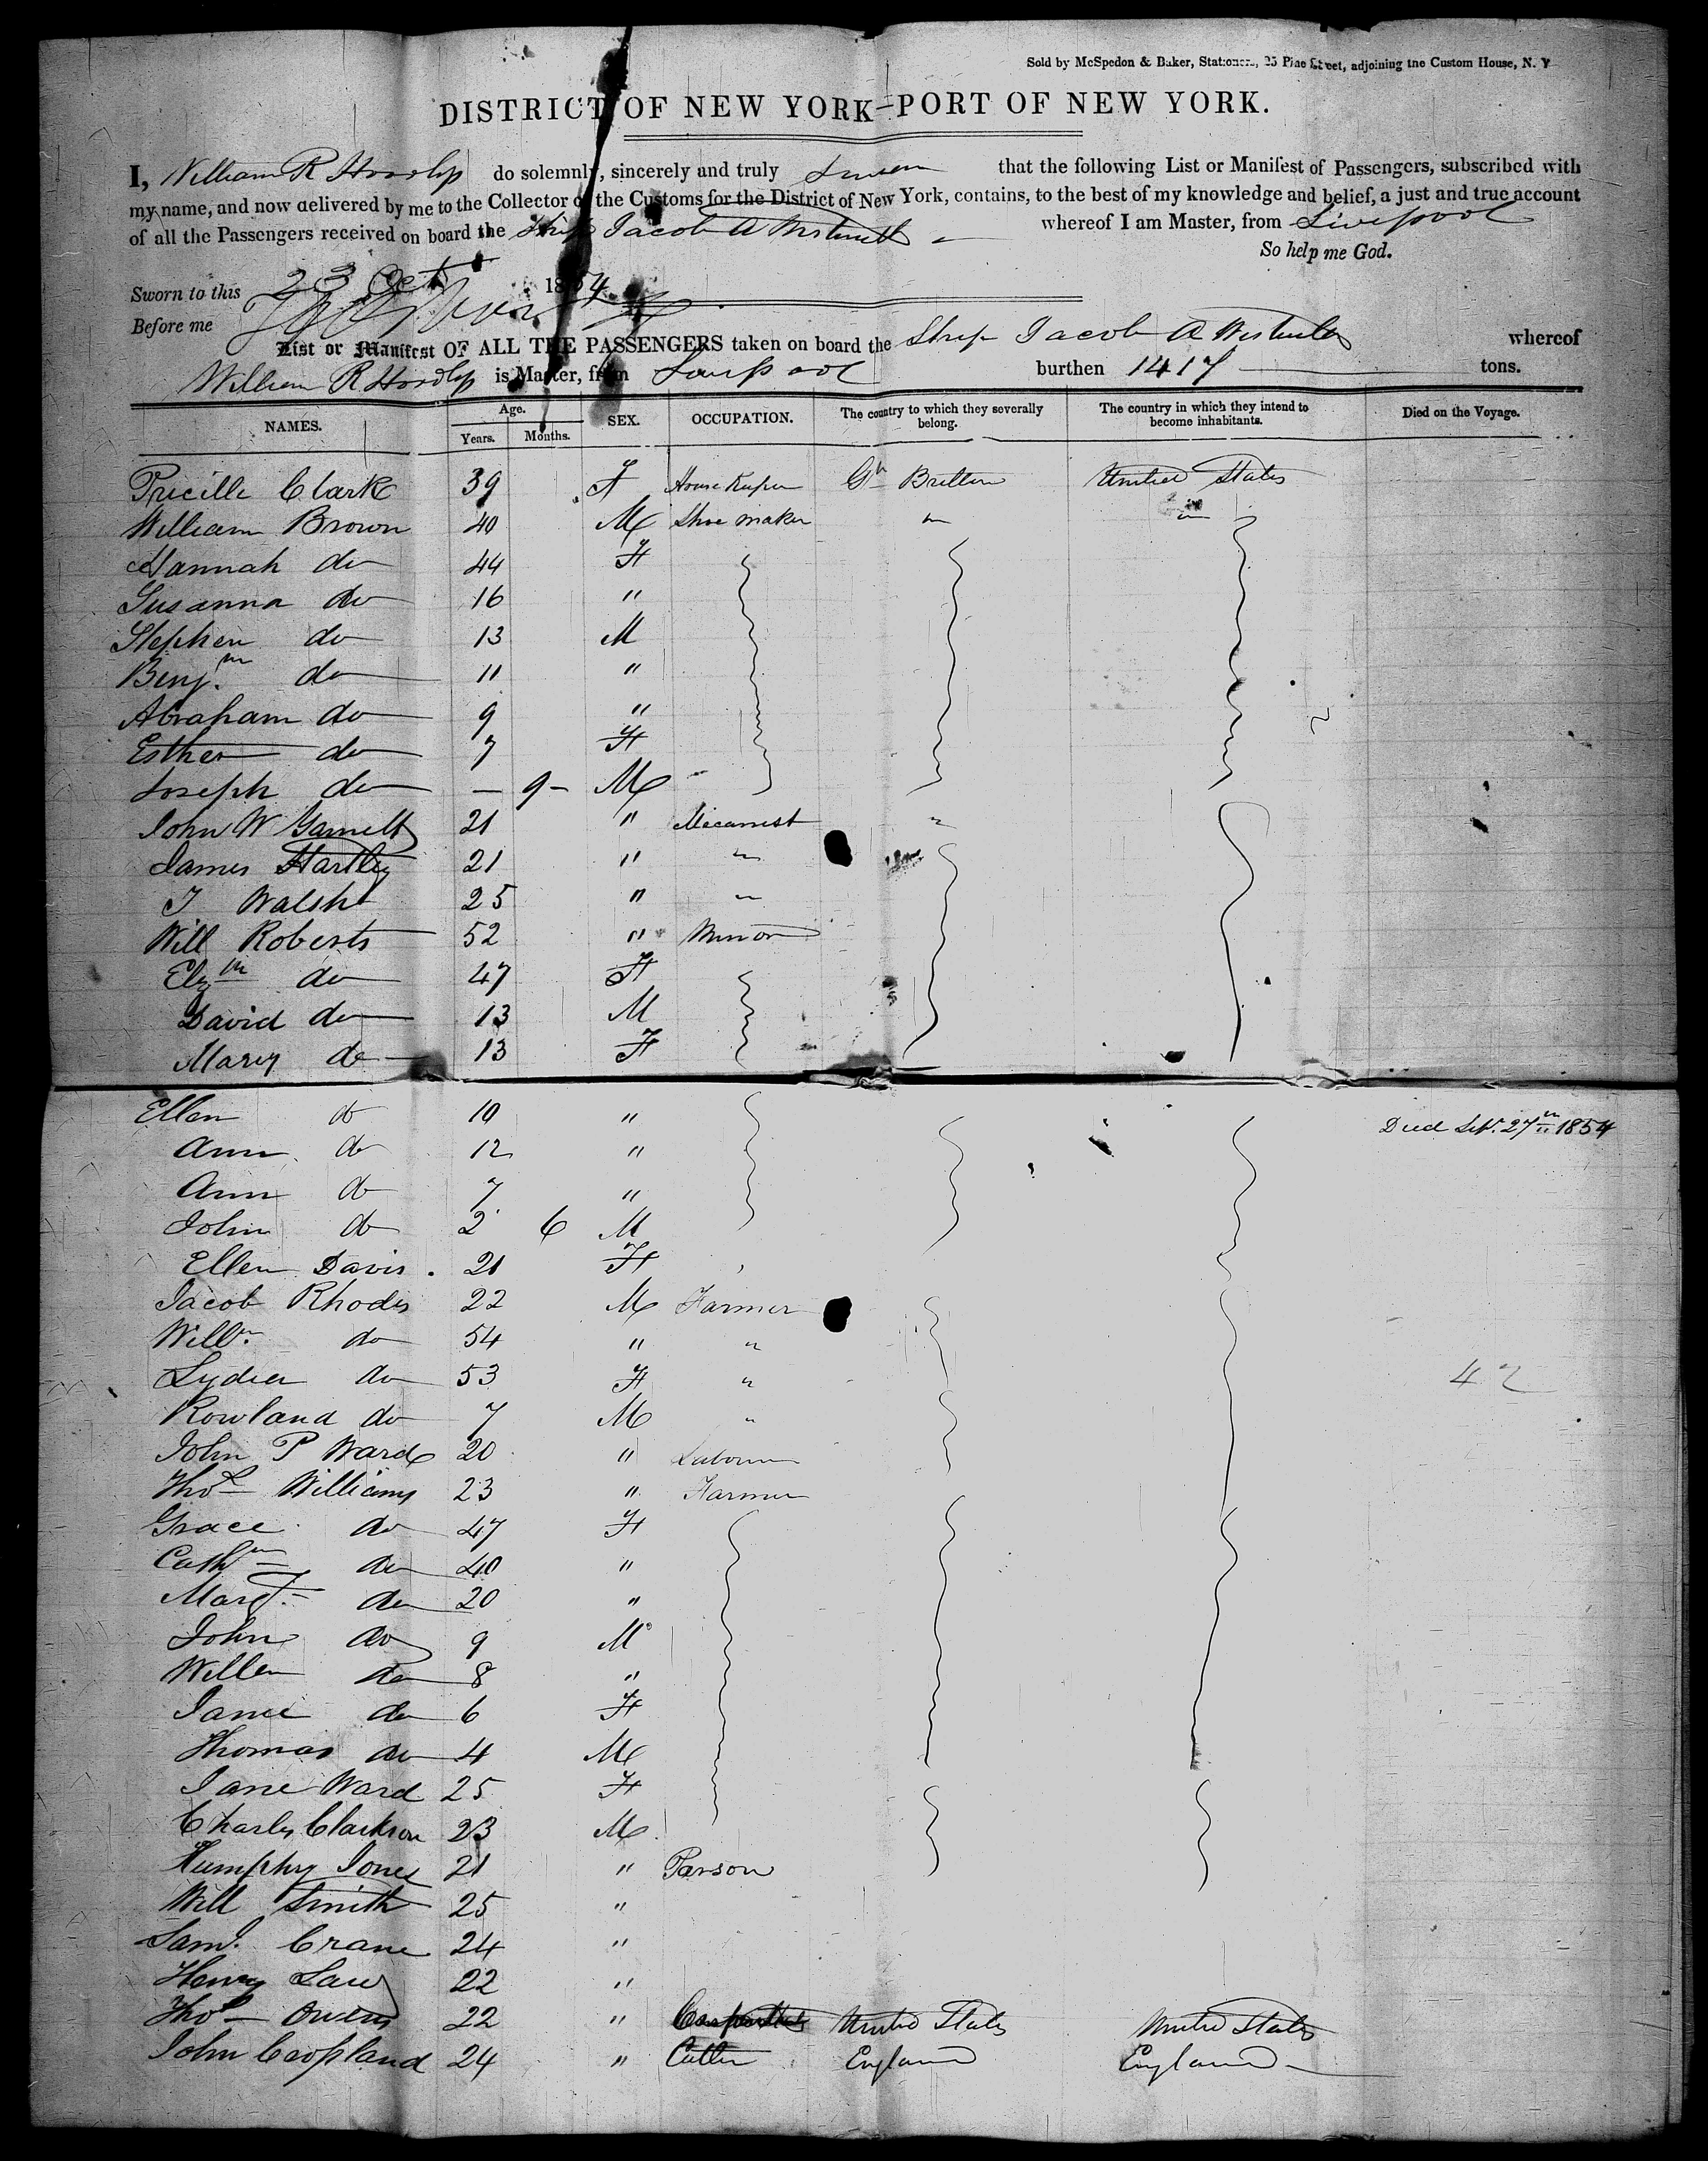 Sold by McSpedon & Baker, Stationers, 25 Pine Street, adjoining the Custom House, N. Y
DISTRICT OF NEW YORK—PORT OF NEW YORK.
I, William R do solemnly, sincerely and truly swear that the following List or Manifest of Passengers, subscribed with
my name, and now delivered by me to the Collector of the Customs for the District of New York, contains, to the best of my knowledge and belief, a just and true account
of all the Passengers received on board the Ship Jacob A whereof I am Master, from Liverpool
So help me God.
Sworn to this 23 Oct 1854
Before me
List or Manifest OF ALL THE PASSENGERS taken on board the Ship Jacob A whereof
William R is Master, from burthen 1417 tons.
NAMES. Age. Years. Months. SEX. OCCUPATION. The country to which they severally belong. The country in which they intend to become inhabitants. Died on the Voyage.
Pricilla Clark 39 F House Keeper Gt Brittan United States
William Brown 40 M Shoe maker " "
Hannah do 44 F
Susanna do 16 "
Stephen do 13 M
Benjm. do 11 "
Abraham do 9 "
Esther do 7 F
Joseph do — 9 - M
John W Garnett 21 " "
James Hartley 21 " "
J Walsh 25 " "
Will Roberts 52 " Minor
Elzth do 47 F
David do 13 M
Mary do 13 F
Ellen do 10 " Died Sept. 27th 1854
Ann do 12 "
Ann do 7 "
John do 2 6 M
Ellen Davis. 21 F
Jacob Rhodes 22 M Farmer
Willm. do 54 " "
Lydia do 53 F " 42
Rowland do 7 M "
John P Ward 20 " Labourer
Thos Williams 23 " Farmer
Grace do 47 F
Cathn do 40 "
Margt. do 20 "
John do 9 M
Willm do 8 "
Jane do 6 F
Thomas do 4 M
Jane Ward 25 F
Charles Clarkson 23 M
Humphry Jones 21 " Parson
Will Smith 25 "
Saml. Crane 24 "
Henry Law 22 "
Thos Owens 22 " United States United States
John Copland 24 " Cutler England England